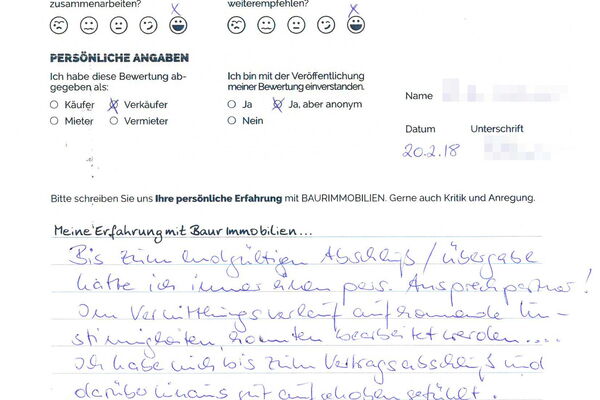 zusammenarbeiten?
weiterempfehlen?
x
x
PERSÖNLICHE ANGABEN
Ich habe diese Bewertung ab-
gegeben als:
Käufer x Verkäufer
Mieter Vermieter
Ich bin mit der Veröffentlichung
meiner Bewertung einverstanden.
Ja x Ja, aber anonym
Nein
Name
Datum Unterschrift
20.2.18
Bitte schreiben Sie uns Ihre persönliche Erfahrung mit BAURIMMOBILIEN. Gerne auch Kritik und Anregung.
Meine Erfahrung mit Baur Immobilien...
Bis zum endgültigen Abschluß/Übergabe
hatte ich immer einen pers. Ansprechpartner!
Im Vermittlungsverlauf aufkommende Un-
stimmigkeiten, konnten bearbeitet werden....
Ich habe mich bis zum Vertragsabschluß und
darüber hinaus gut aufgehoben gefühlt.